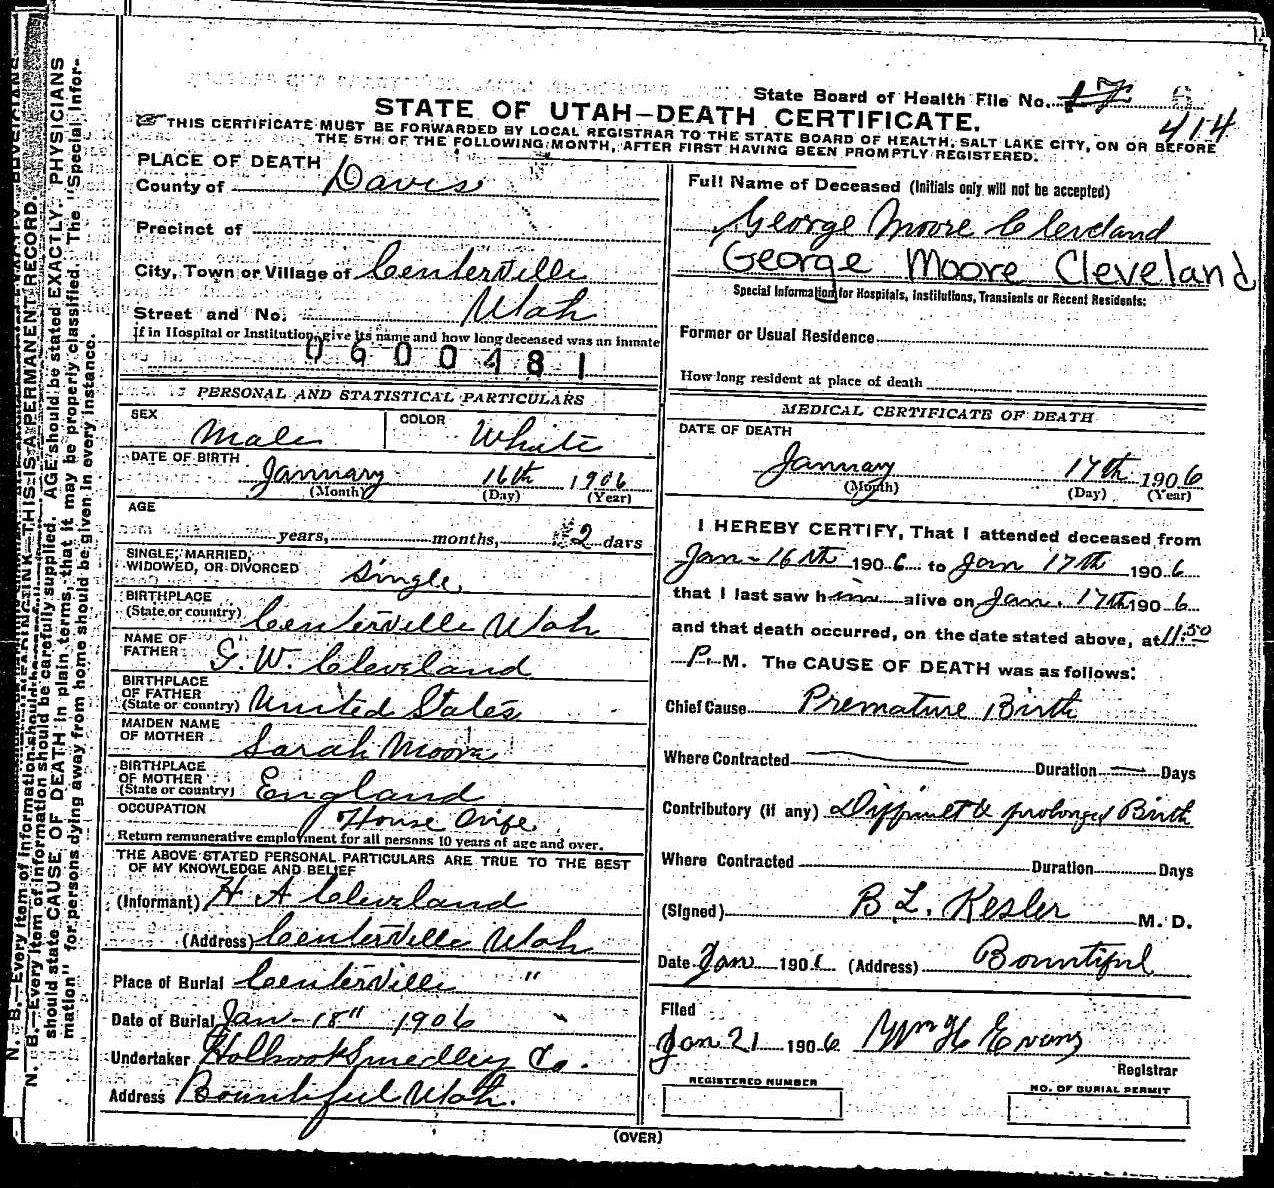 State Board of Health File No. 17
414
STATE OF UTAH—DEATH CERTIFICATE.
THIS CERTIFICATE MUST BE FORWARDED BY LOCAL REGISTRAR TO THE STATE BOARD OF HEALTH, SALT LAKE CITY, ON OR BEFORE
THE 5TH OF THE FOLLOWING MONTH, AFTER FIRST HAVING BEEN PROMPTLY REGISTERED.
PLACE OF DEATH
County of Davis
Precinct of
City, Town or Village of Centerville
Street and No. Utah
If in Hospital or Institution, give its name and how long deceased was an inmate
0600481
PERSONAL AND STATISTICAL PARTICULARS
SEX Male COLOR White
DATE OF BIRTH January 16th 1906
(Month) (Day) (Year)
AGE
years, months, 2 days
SINGLE, MARRIED,
WIDOWED, OR DIVORCED Single
BIRTHPLACE
(State or country) Centerville Utah
NAME OF
FATHER G. W. Cleveland
BIRTHPLACE
OF FATHER
(State or country) United States
MAIDEN NAME
OF MOTHER Sarah Moore
BIRTHPLACE
OF MOTHER
(State or country) England
OCCUPATION House Wife
Return remunerative employment for all persons 10 years of age and over.
THE ABOVE STATED PERSONAL PARTICULARS ARE TRUE TO THE BEST
OF MY KNOWLEDGE AND BELIEF
(Informant) H A Cleveland
(Address) Centerville Utah
Place of Burial Centerville "
Date of Burial Jan - 18" 1906
Undertaker Holbrook Smedley Co.
Address Bountiful Utah.
Full Name of Deceased (Initials only will not be accepted)
George Moore Cleveland
George Moore Cleveland
Special Information for Hospitals, Institutions, Transients or Recent Residents:
Former or Usual Residence
How long resident at place of death
MEDICAL CERTIFICATE OF DEATH
DATE OF DEATH
January 17th 1906
(Month) (Day) (Year)
I HEREBY CERTIFY, That I attended deceased from
Jan - 16th 1906 to Jan 17th 1906
that I last saw him alive on Jan. 17th 1906
and that death occurred, on the date stated above, at 11:50
P. M. The CAUSE OF DEATH was as follows:
Chief Cause Premature Birth
Where Contracted — Duration — Days
Contributory (if any) Difficult & prolonged Birth
Where Contracted Duration Days
(Signed) B L. Kesler M. D.
Date Jan 190 (Address) Bountiful
Filed
Jan 21 1906 Wm H Evans
Registrar
REGISTERED NUMBER
NO. OF BURIAL PERMIT
(OVER)
N. B.—Every item of information should be carefully supplied. AGE should be stated EXACTLY. PHYSICIANS
should state CAUSE OF DEATH in plain terms, that it may be properly classified. The "Special Infor-
mation" for persons dying away from home should be given in every instance.